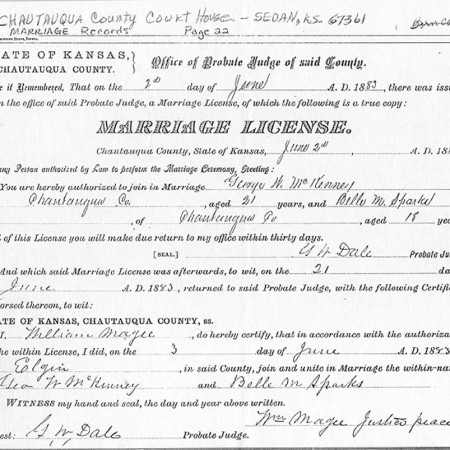 CHAUTAUQUA County Court House - SEDAN, KS. 67361
MARRIAGE Records Page 22
ATE OF KANSAS,
CHAUTAUQUA COUNTY.
Office of Probate Judge of said County.
e it Remembered, That on the 2nd day of June A. D. 1883, there was issu
n the office of said Probate Judge, a Marriage License, of which the following is a true copy:
MARRIAGE LICENSE.
Chautauqua County, State of Kansas, June 2nd A. D. 188
ny Person authorized by Law to perform the Marriage Ceremony, Greeting:
You are hereby authorized to join in Marriage George W. McKenney
Chautauqua Co. , aged 21 years, and Belle M. Sparks
of Chautauqua Co , aged 18 year
d of this License you will make due return to my office within thirty days.
[SEAL.] G W Dale Probate Judg
And which said Marriage License was afterwards, to wit, on the 21 da
June A. D. 1883, returned to said Probate Judge, with the following Certific
orsed thereon, to wit:
ATE OF KANSAS, CHAUTAUQUA COUNTY, ss.
I, William Magee , do hereby certify, that in accordance with the authoriza
he within License, I did, on the 3 day of June A. D. 1883
Elgin , in said County, join and unite in Marriage the within-na
Geo W McKenney and Belle M Sparks
WITNESS my hand and seal, the day and year above written.
Wm Magee Justice peace
est: G, W, Dale Probate Judge.